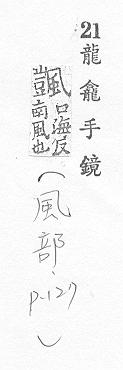 21龍龕手鏡
颽口海反
南風也
（風部、p.127）